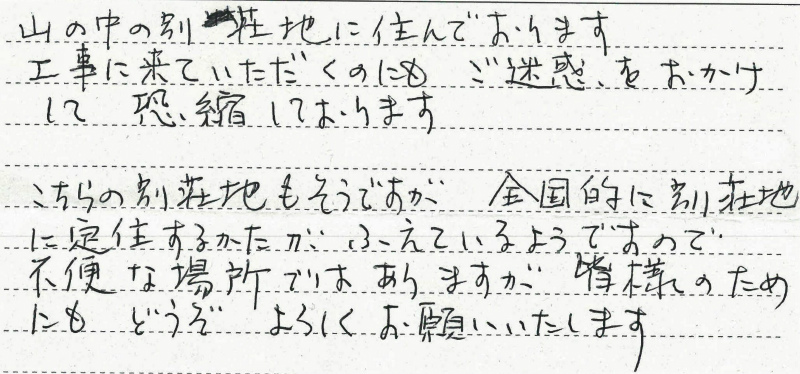 山の中の別荘地に住んでおります
工事に来ていただくのにも ご迷惑をおかけ
して 恐縮しております
こちらの別荘地もそうですが 全国的に別荘地
に定住するかたが ふえているようですので
不便な場所ではありますが 皆様のため
にも どうぞ よろしくお願いいたします